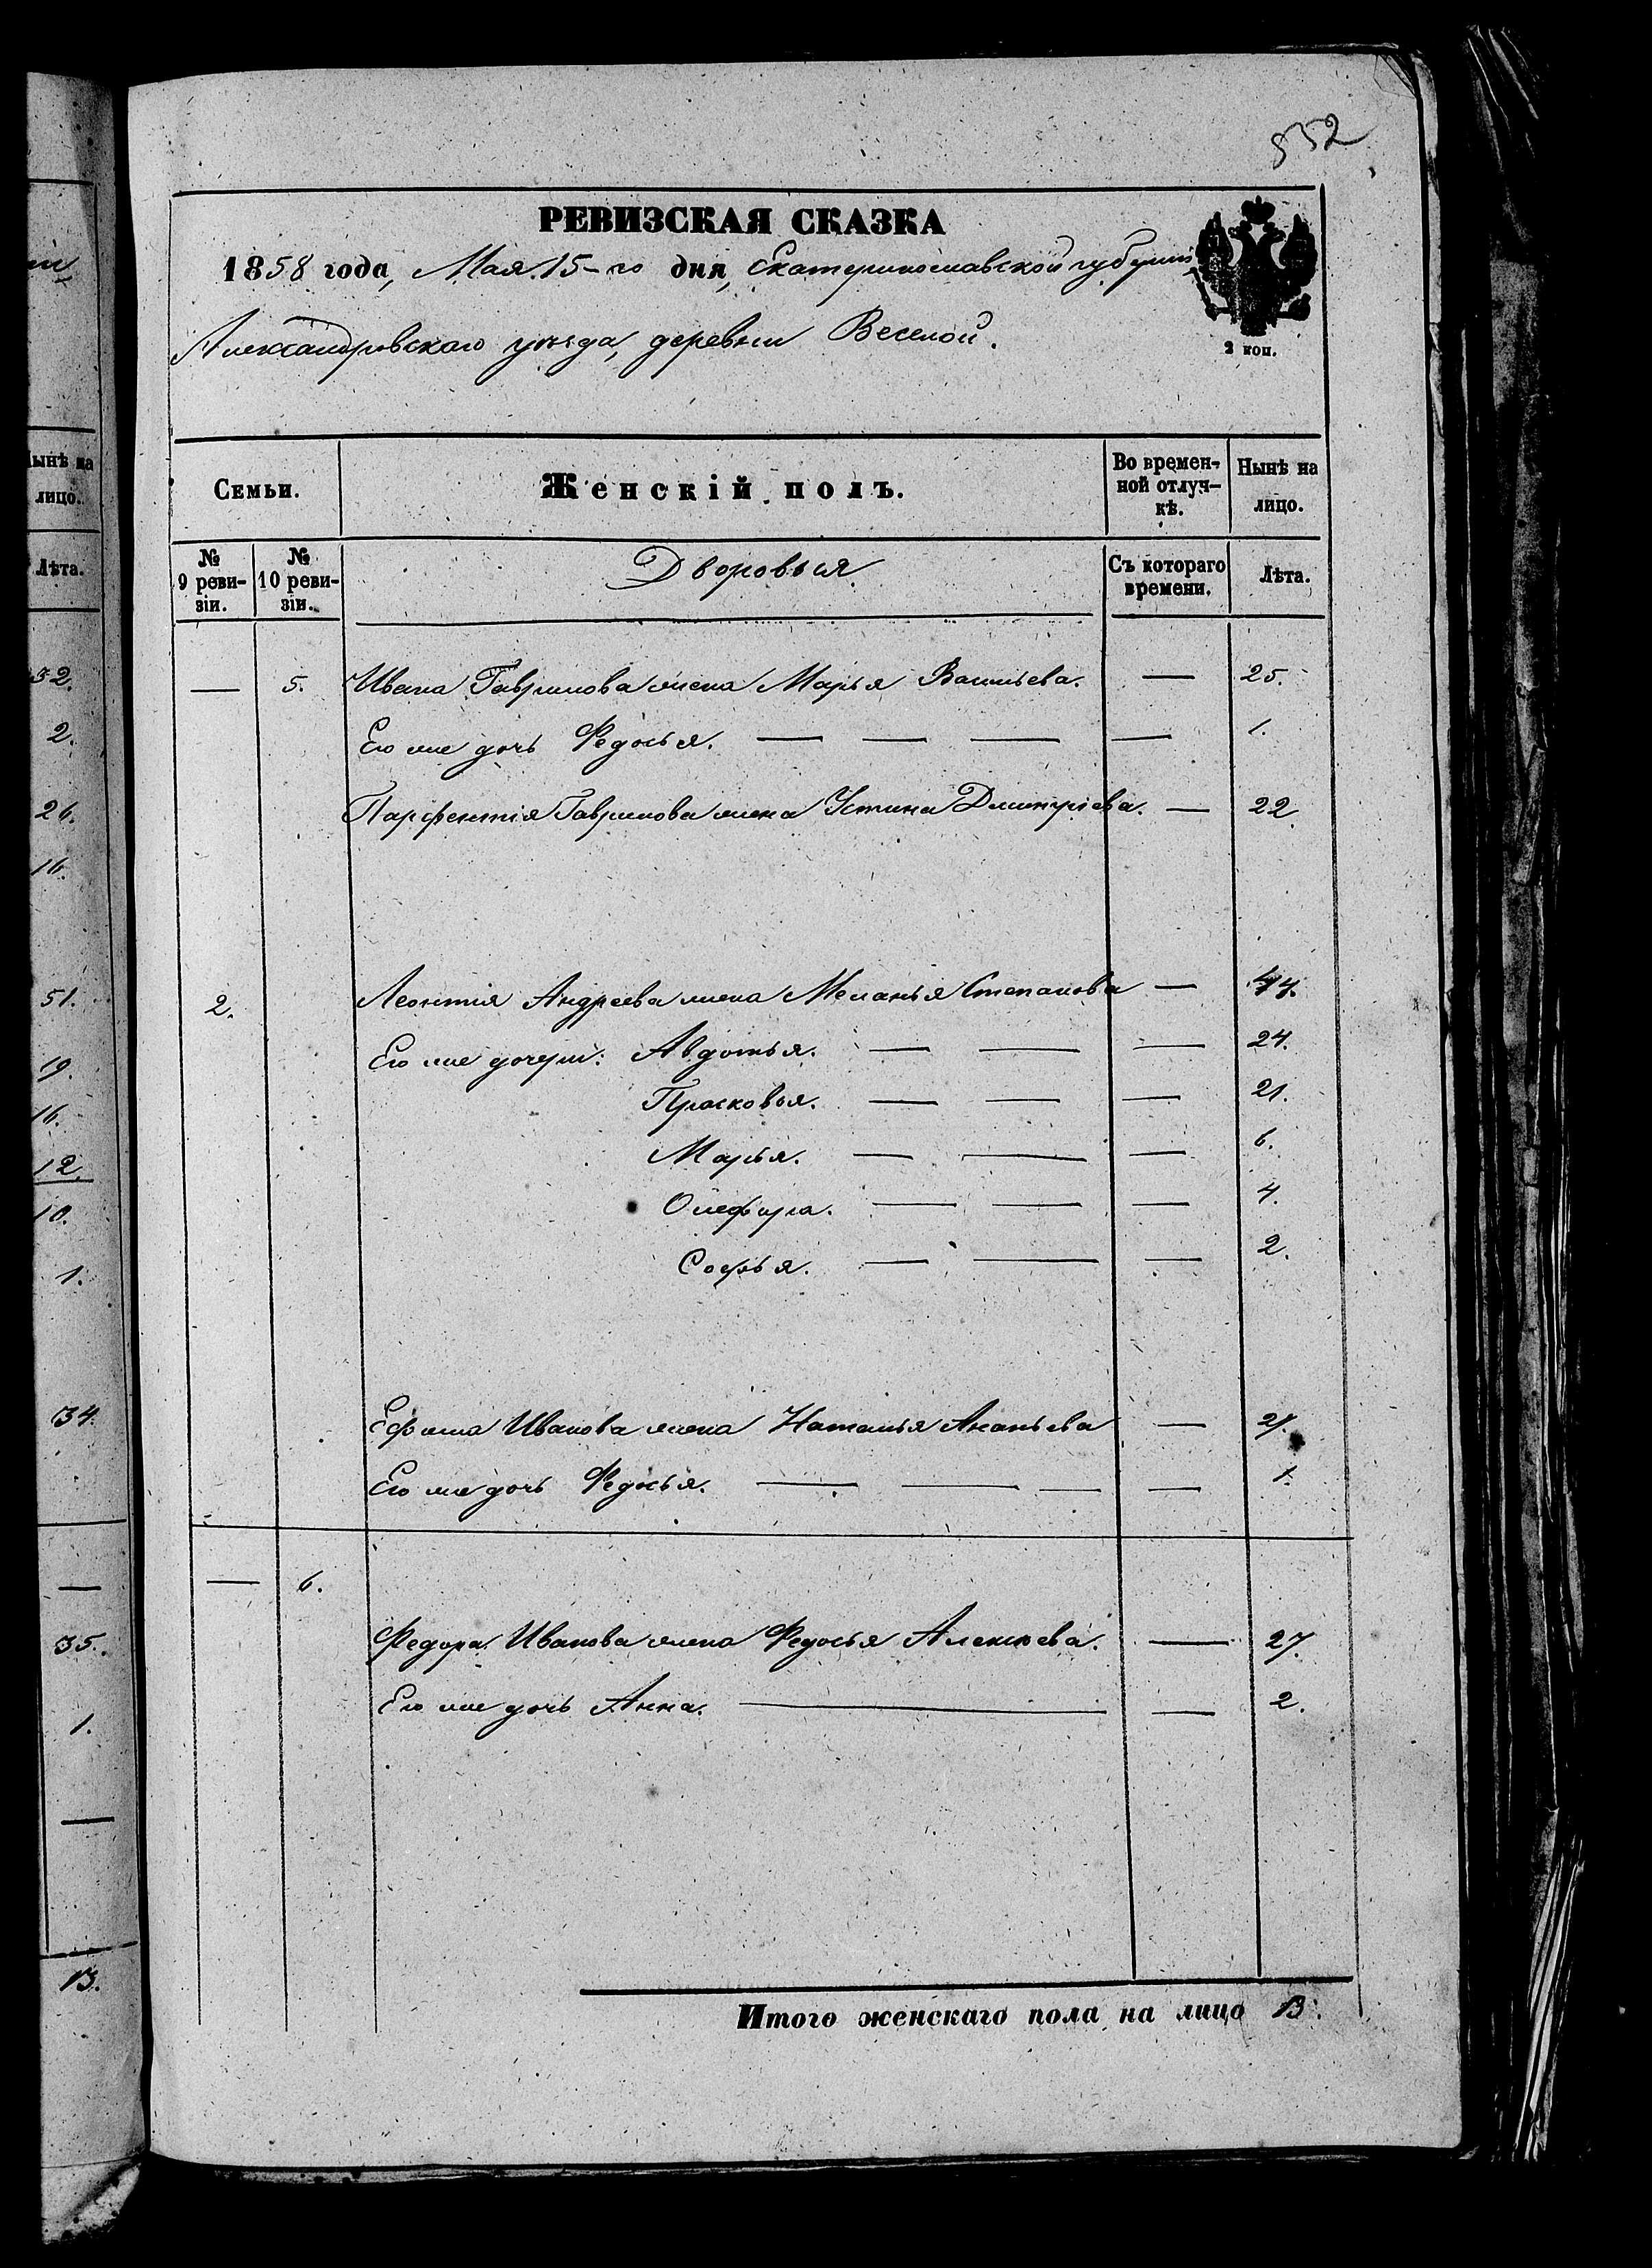 552
РЕВИЗСКАЯ СКАЗКА
1858 года, Мая 15-го дня, Екатеринославской губерніи
Александровскаго уѣзда, деревни Веселой.
2 коп.
Семьи. Женскій полъ. Во времен- Нынѣ на
ной отлуч- лицо.
кѣ.
№ № Дворовыя Съ котораго Лѣта.
9 реви- 10 реви- времени.
зіи. зіи.
— 5. Ивана Гаврилова жена Марья Васильева. — 25.
Его же дочь Федосья. — — — — 1.
Парфентія Гаврилова жена Устина Дмитріева. — 22.
2. Леонтія Андреева жена Меланья Степанова — 44.
Его же дочери: Авдотья. — — — 24.
Прасковья. — — — 21.
Марья. — — — 6.
Олефира. — — — 4.
Софья. — — — 2.
Ефима Иванова жена Наталья Ананьева — 21.
Его же дочь Федосья. — — — — 1.
— 6.
Федора Иванова жена Федосья Алексѣева. — 27.
Его же дочь Анна. — — 2.
Итого женскаго пола на лицо 13.
Нынѣ на
лицо.
Лѣта.
32.
2.
26.
16.
51.
19.
16.
12.
10.
1.
34.
—
35.
1.
—
13.